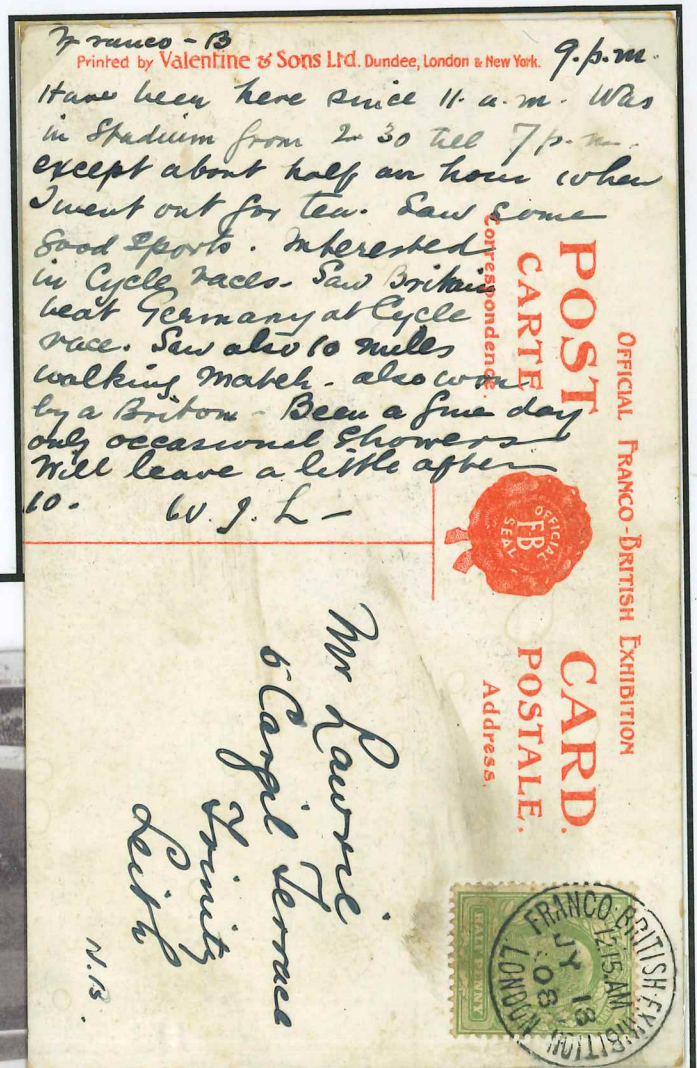 Franco-B
9.p.m.
Printed by Valentine & Sons Ltd. Dundee, London & New York.
Have been here since 11. a. m. Was
in Stadium from 2.30 till 7 p. m.
except about half an hour when
I went out for tea. Saw some
good sports. Interested
in Cycle races. Saw Britain
beat Germany at Cycle
race. Saw also 10 miles
walking match - also won
by a Briton - Been a fine day
only occasional showers
Will leave a little after
10. W. J. L -
OFFICIAL FRANCO-BRITISH EXHIBITION
POST CARD.
CARTE POSTALE.
Correspondence.
Address.
OFFICIAL
FB
SEAL
Mr Lawrie
5 Cargil Terrace
Trinity
Leith
N.B.
HALF PENNY
FRANCO-BRITISH EXHIBITION LONDON
12.15 AM
JY 18
08